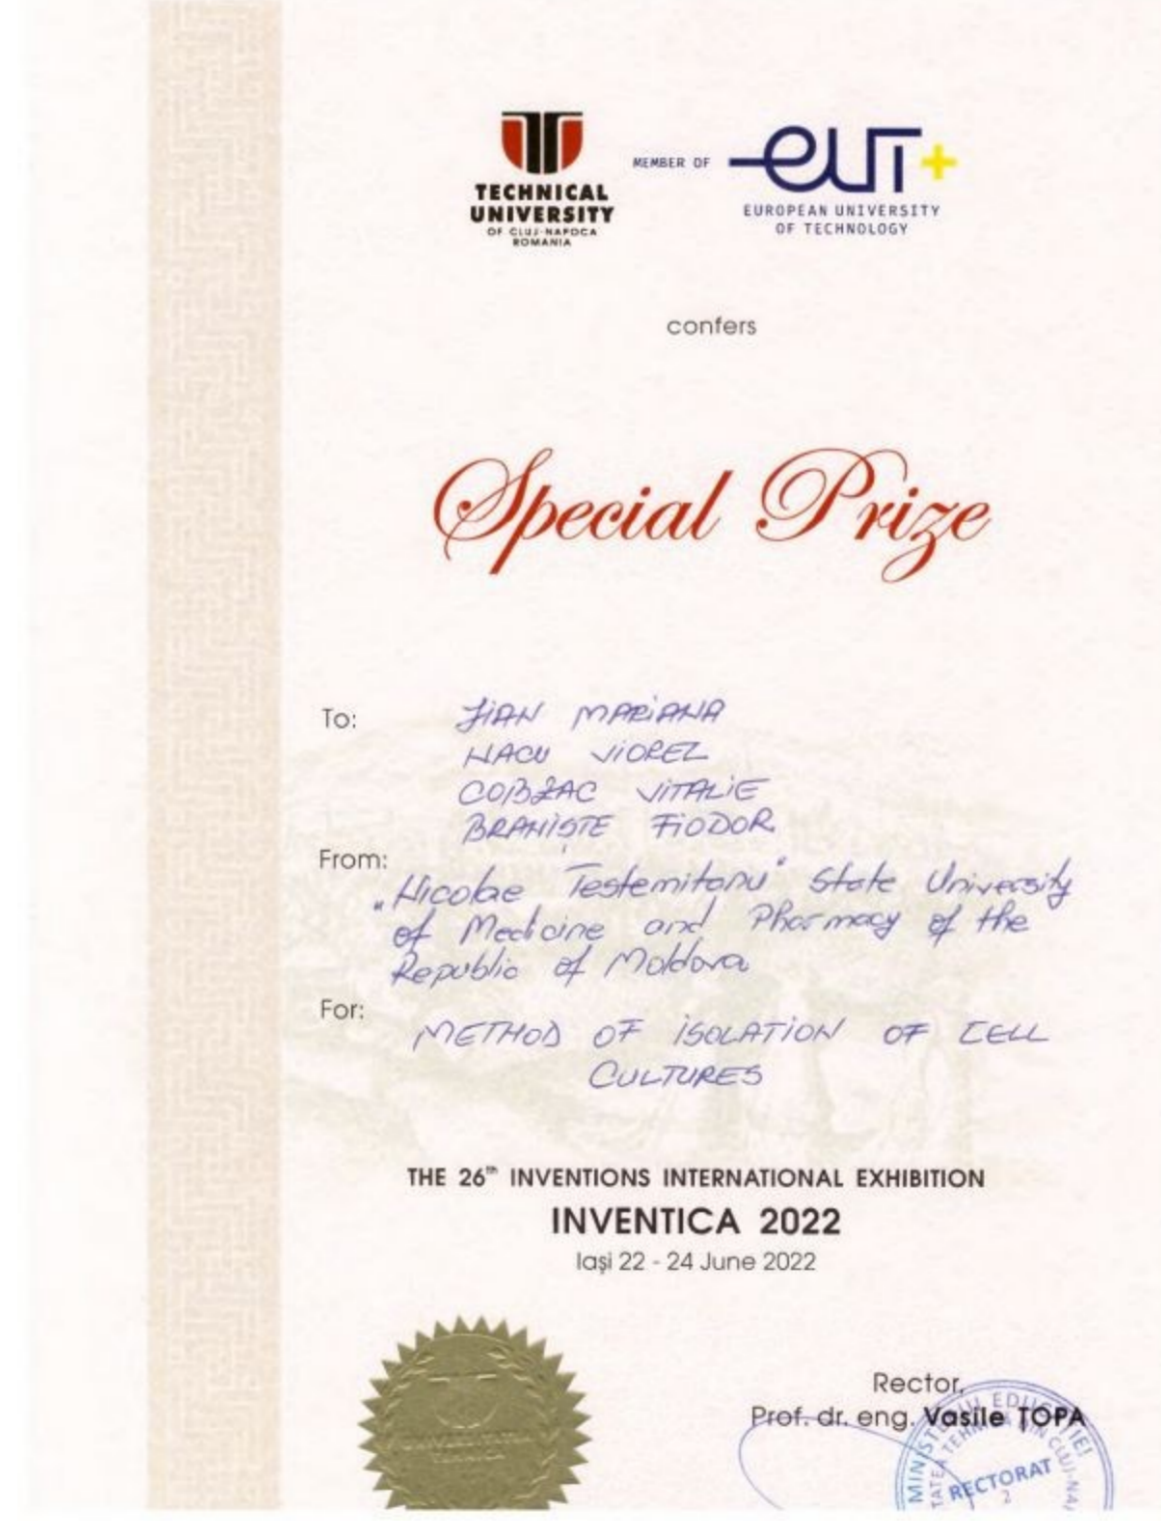 TECHNICAL
UNIVERSITY
OF CLUJ-NAPOCA
ROMANIA
MEMBER OF
eut+
EUROPEAN UNIVERSITY
OF TECHNOLOGY
confers
Special Prize
To:
JIAN MARIANA
NACU VIOREL
COBZAC VITALIE
BRANIȘTE FIODOR
From:
„Nicolae Testemitanu" State University
of Medicine and Pharmacy of the
Republic of Moldova
For:
METHOD OF ISOLATION OF CELL
CULTURES
THE 26th INVENTIONS INTERNATIONAL EXHIBITION
INVENTICA 2022
Iaşi 22 - 24 June 2022
Rector,
Prof. dr. eng. Vasile ŢOPA
MINISTERIUL EDUCAŢIEI
TATEA TEHNICĂ DIN CLUJ-NA
RECTORAT
2